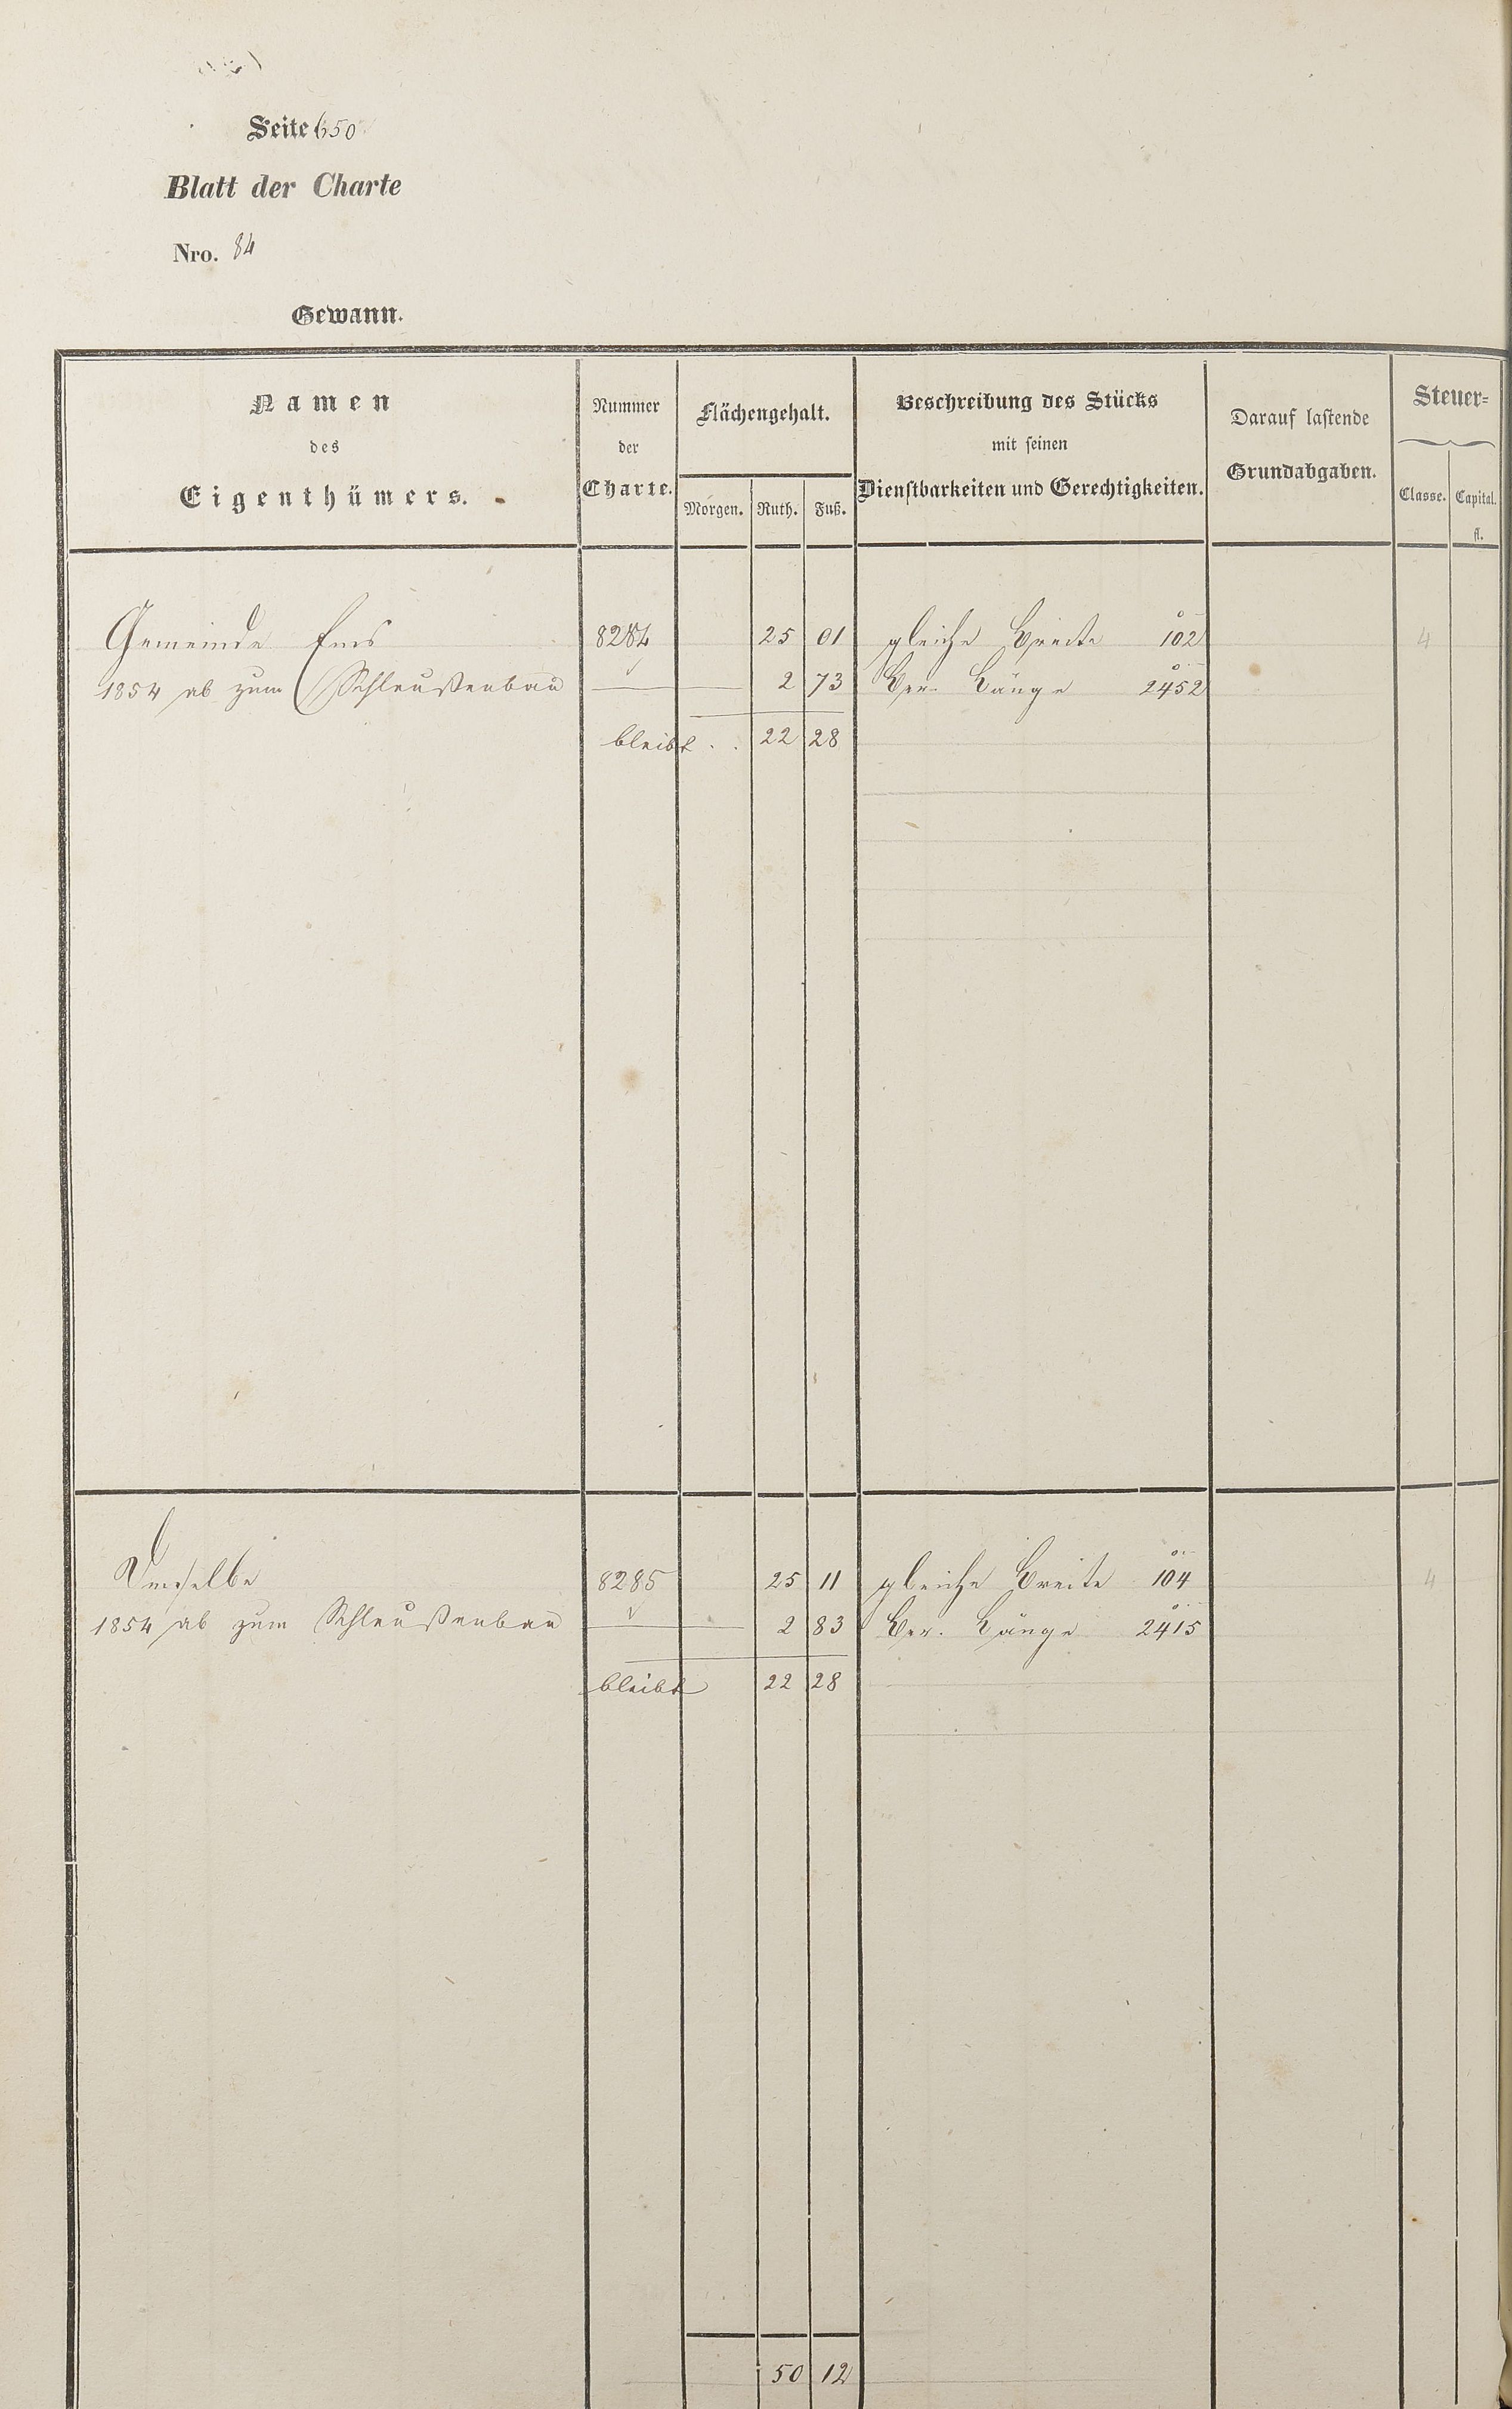 Seite 650
Blatt der Charte
Nro. 84
Gewann.
Namen
des
Eigenthümers.
Nummer
der
Charte.
Flächengehalt.
Morgen. Ruth. Fuß.
Beschreibung des Stücks
mit seinen
Dienstbarkeiten und Gerechtigkeiten.
Darauf lastende
Grundabgaben.
Steuer-
Classe. Capital.
fl.
Gemeinde Ems 8284 25 01 gleiche Breite 102 4
1854 ab zum Schleußenbau 2 73 Ber. Länge 2452
bleibt . . 22 28
Dieselbe 8285 25 11 gleiche Breite 104 4
1854 ab zum Schleußenbau 2 83 Ber. Länge 2415
bleibt 22 28
50 12